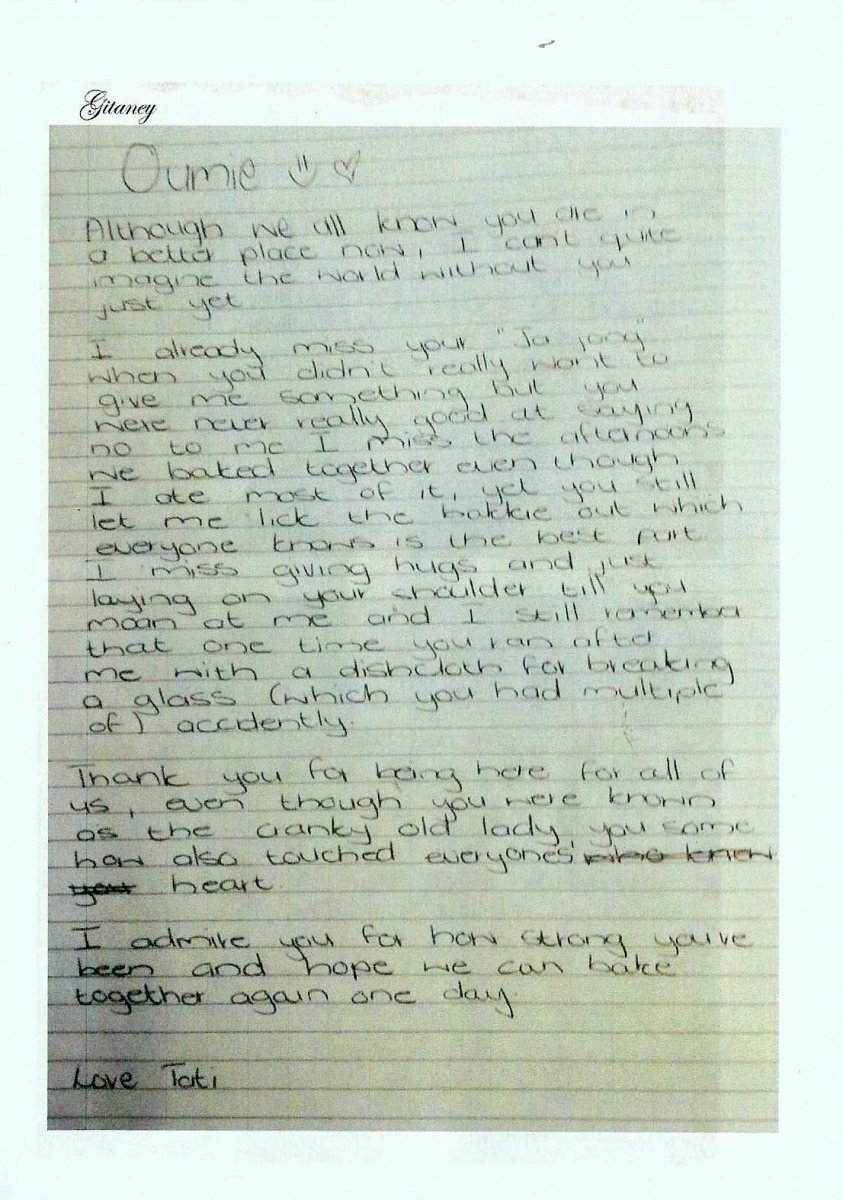 Gitaney
Oumie
Although we all know you are in
a better place now, I cant quite
imagine the world without you
just yet
I already miss your "Ja jong"
when you didn't really want to
give me something but you
were never really good at saying
no to me I miss the afternoons
we baked together even though
I ate most of it, yet you still
let me lick the bakkie out which
everyone knows is the best part
I miss giving hugs and just
laying on your shoulder till you
moan at me and I still remember
that one time you ran after
me with a dishcloth for breaking
a glass (which you had multiple
of) accidently.
Thank you for being here for all of
us, even though you were known
as the cranky old lady, you some
how also touched everyones' who knew
your heart.
I admire you for how strong you've
been and hope we can bake
together again one day
Love Tati